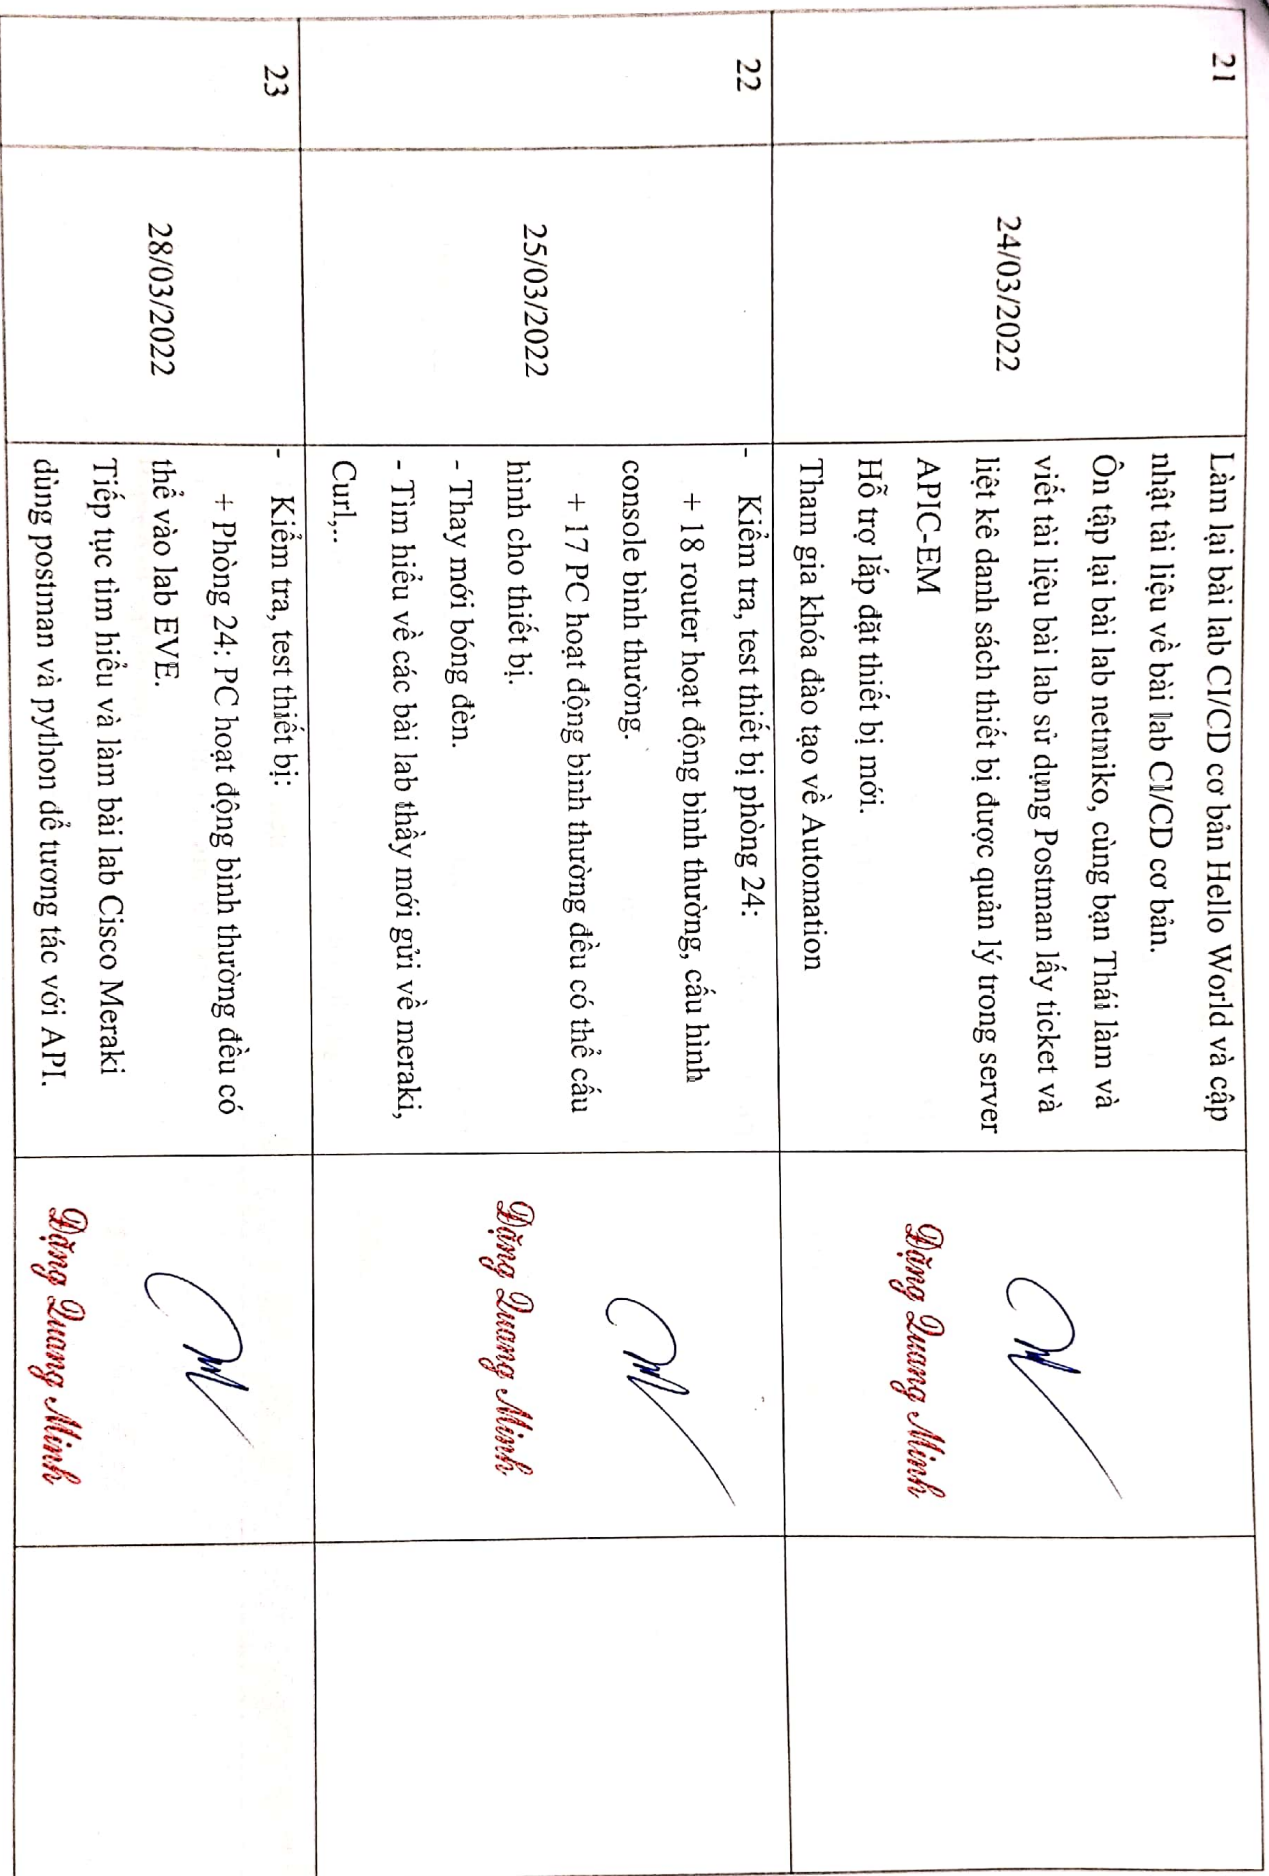 21
24/03/2022
Làm lại bài lab CI/CD cơ bản Hello World và cập
nhật tài liệu về bài lab CI/CD cơ bản.
Ôn tập lại bài lab netmiko, cùng bạn Thái làm và
viết tài liệu bài lab sử dụng Postman lấy ticket và
liệt kê danh sách thiết bị được quản lý trong server
APIC-EM
Hỗ trợ lắp đặt thiết bị mới.
Tham gia khóa đào tạo về Automation
Đặng Quang Minh
22
25/03/2022
- Kiểm tra, test thiết bị phòng 24:
+ 18 router hoạt động bình thường, cấu hình
console bình thường.
+ 17 PC hoạt động bình thường đều có thể cấu
hình cho thiết bị.
- Thay mới bóng đèn.
- Tìm hiểu về các bài lab thầy mới gửi về meraki,
Curl,..
Đặng Quang Minh
23
28/03/2022
- Kiểm tra, test thiết bị:
+ Phòng 24: PC hoạt động bình thường đều có
thể vào lab EVE.
Tiếp tục tìm hiểu và làm bài lab Cisco Meraki
dùng postman và python để tương tác với API.
Đặng Quang Minh